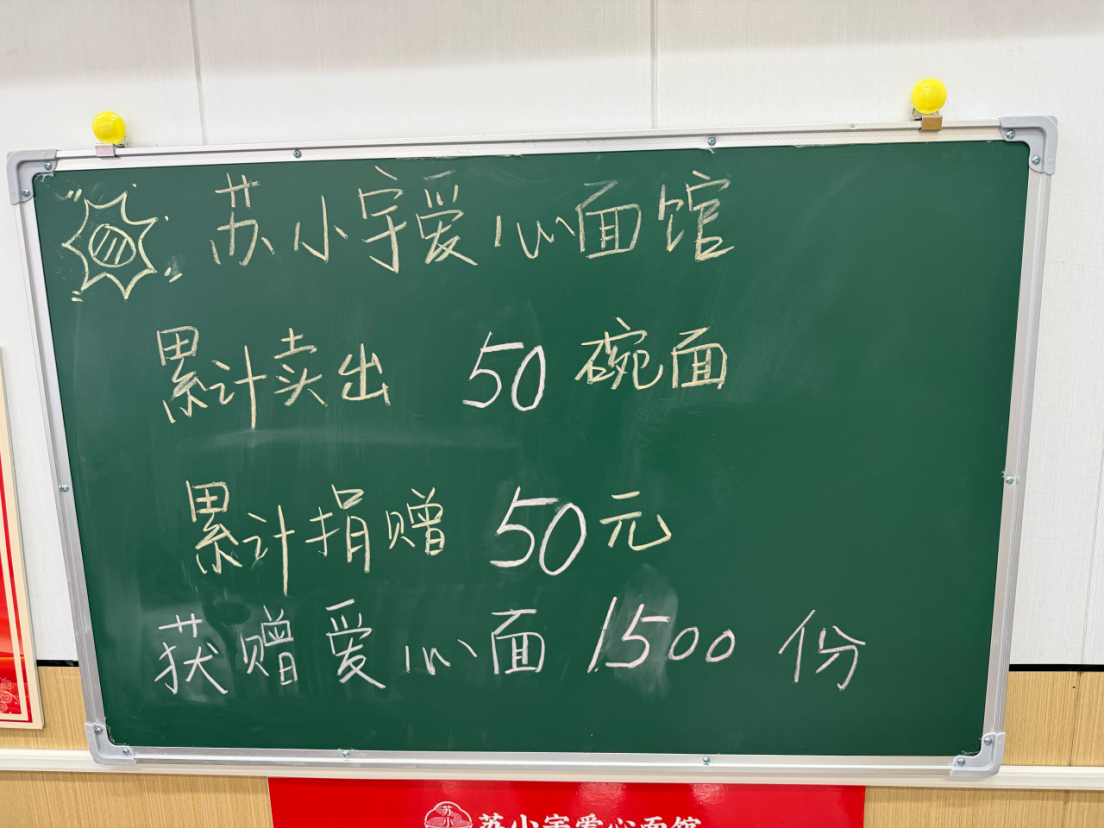 苏小宇爱心面馆
累计卖出 50 碗面
累计捐赠 50元
获赠爱心面 1500 份
苏小
苏小宇爱心面馆